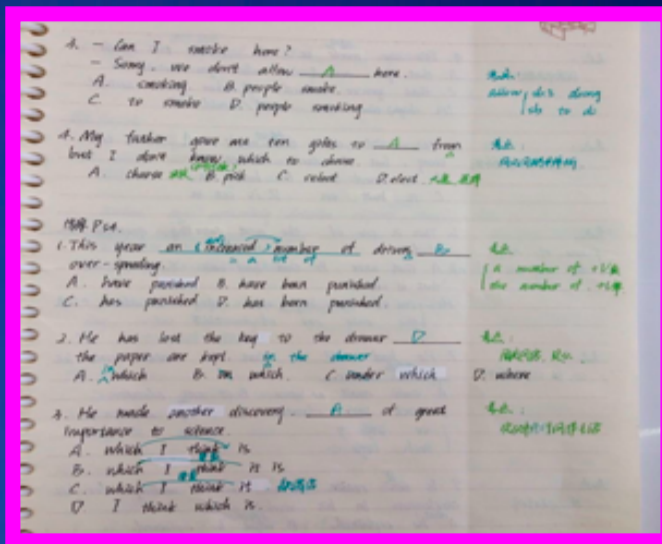 3. - Can I smoke here?
- Sorry, we don't allow A here.
A. smoking B. people smoke.
C. to smoke D. people smoking
allow doing
sb to do
4. My father gave me ten gifts to A from
but I don't know which to
A. choose B. pick C. select D. elect
P64.
1. This year an increased number of drivers B
= a lot of
over-speeding.
A. have punished B. have been punished.
C. has punished D. has been punished.
a number of +V
the number of +V单
2. He has lost the key to the drawer D
the paper are kept. in the drawer
A. which B. on which. C. under which D. where
3. He made another discovery, A of great
importance to science.
A. which I think is
B. which I think it is
C. which I think it
D I think which is.